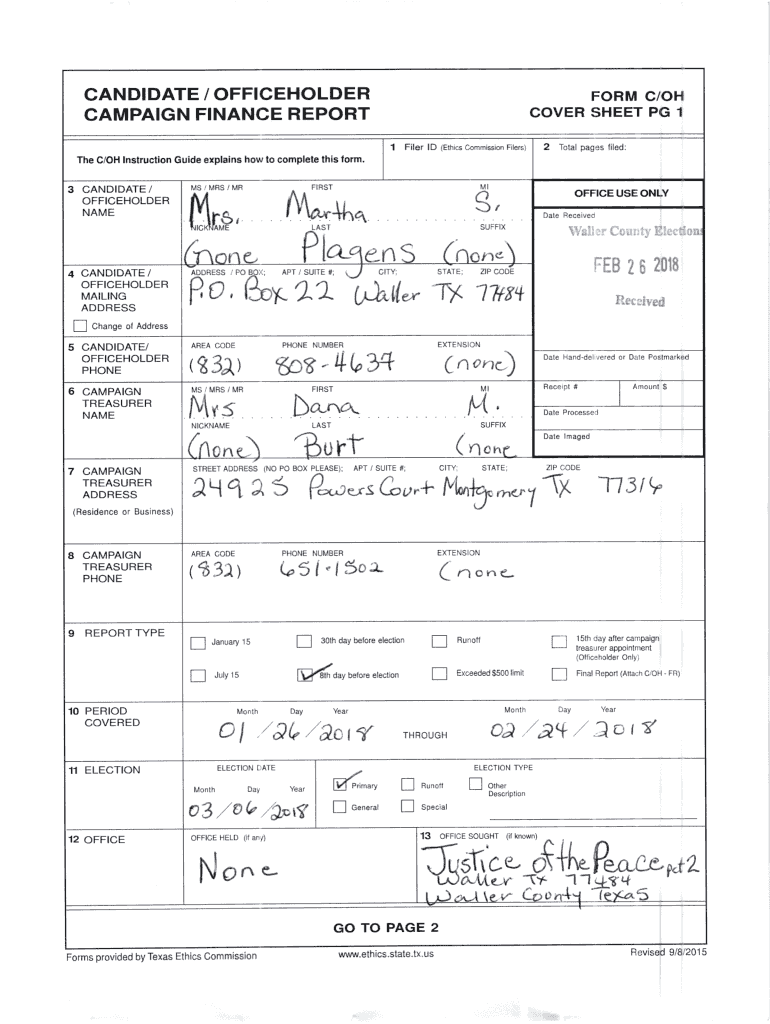 CANDIDATE / OFFICEHOLDER
CAMPAIGN FINANCE REPORT
FORM C/OH
COVER SHEET PG 1
The C/OH Instruction Guide explains how to complete this form.
1 Filer ID (Ethics Commission Filers)
2 Total pages filed:
3 CANDIDATE / OFFICEHOLDER NAME
MS / MRS / MR FIRST MI
Mrs. Martha S.
NICKNAME LAST SUFFIX
(none Plagens (none)
OFFICE USE ONLY
Date Received
Waller County Elections
FEB 26 2018
Received
4 CANDIDATE / OFFICEHOLDER MAILING ADDRESS
Change of Address
ADDRESS / PO BOX; APT / SUITE #; CITY; STATE; ZIP CODE
P.O. Box 22 Waller TX 77484
5 CANDIDATE/ OFFICEHOLDER PHONE
AREA CODE PHONE NUMBER EXTENSION
(832) 808-4637 (none)
Date Hand-delivered or Date Postmarked
6 CAMPAIGN TREASURER NAME
MS / MRS / MR FIRST MI
Mrs Dana M.
NICKNAME LAST SUFFIX
(none) Burt (none
Receipt # Amount $
Date Processed
Date Imaged
7 CAMPAIGN TREASURER ADDRESS
(Residence or Business)
STREET ADDRESS (NO PO BOX PLEASE); APT / SUITE #; CITY; STATE; ZIP CODE
24925 Powers Court Montgomery TX 77316
8 CAMPAIGN TREASURER PHONE
AREA CODE PHONE NUMBER EXTENSION
(832) 651-1502 (none
9 REPORT TYPE
January 15
30th day before election
Runoff
15th day after campaign treasurer appointment (Officeholder Only)
July 15
8th day before election
Exceeded $500 limit
Final Report (Attach C/OH - FR)
10 PERIOD COVERED
Month Day Year
01/26/2018
THROUGH
Month Day Year
02/24/2018
11 ELECTION
ELECTION DATE
Month Day Year
03/06/2018
ELECTION TYPE
Primary
Runoff
Other Description
General
Special
12 OFFICE
OFFICE HELD (if any)
None
13 OFFICE SOUGHT (if known)
Justice of the Peace pct 2
Waller Tx 77484
Waller County Texas
GO TO PAGE 2
Forms provided by Texas Ethics Commission
www.ethics.state.tx.us
Revised 9/8/2015